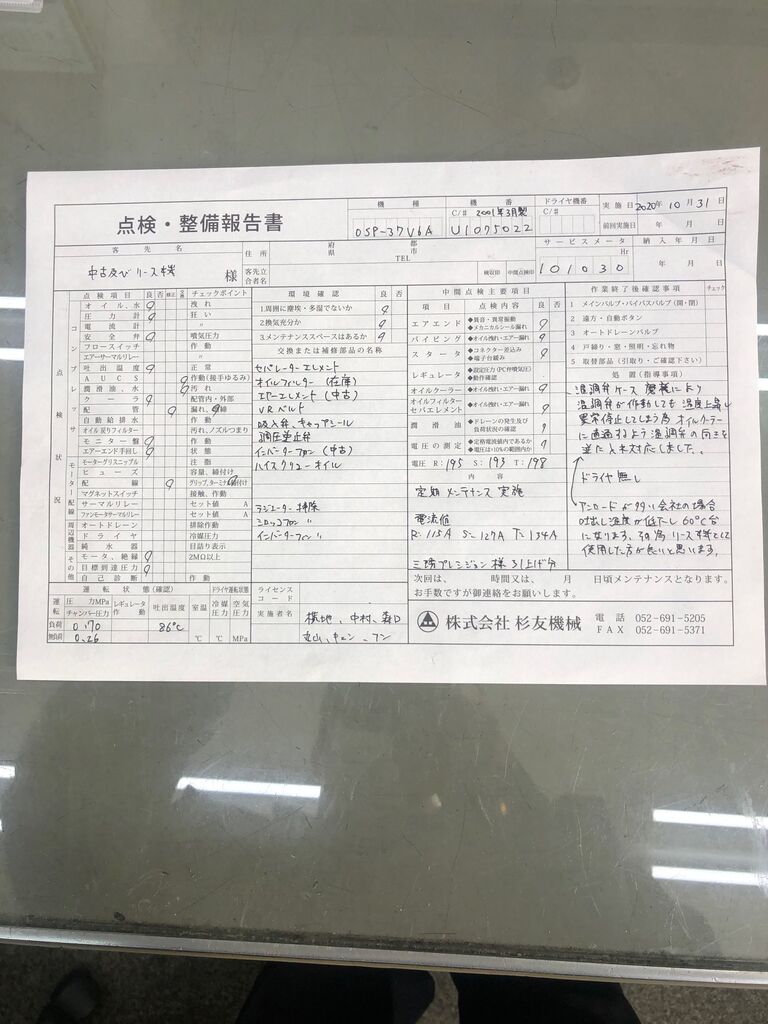 点検・整備報告書
機種
OSP-37V6A
機番
C/# 2001年3月製
U1075022
ドライヤ機番
C/#
実施日 2020年 10月 31日
前回実施日 年 月 日
客先名
中古及びリース機 様
住所
都
府
県
市
TEL
客先立合者名
検収印
中間点検印
サービスメータ
Hr
101030
納入年月日
年 月 日
点検状況
点検項目 良 否 修正 交換 チェックポイント
コンプレッサ
オイル、水 洩れ
圧力計 狂い
電流計 〃
安全弁 噴気圧力
フロースイッチ 作動
エアーサーマルリレー 〃
吐出温度 正常
AUCS 作動(接手ゆるみ)
潤滑油、水 汚れ
クーラ 配管内・外部
配管 漏れ、
自動給排水 作動
オイル戻りフィルター 汚れ、ノズルつまり
モニター盤 作動
エアーエンド手回し 状態
モータ・配線
モーターグリスニップル 注脂
ヒューズ 容量、締付け
配線 グリップ、ターミナル締付け
マグネットスイッチ 接触、作動
サーマルリレー セット値 A
ファンモータサーマルリレー セット値 A
周辺機器
オートドレーン 排除作動
ドライヤ 冷媒圧力
純水器 目詰り表示
その他
モータ、絶縁 2MΩ以上
目標到達圧力
自己診断 作動
環境確認 良 否
1.周囲に塵埃・多湿でないか
2.換気充分か
3.メンテナンススペースはあるか
交換または補修部品の名称
セパレーターエレメント
オイルフィルター (在庫)
エアーエレメント (中古)
VRベルト
吸入弁、キャップシール
調圧逆止弁
インバーターファン (中古)
ハイスクリューオイル
ラジエーター掃除
シロッコファン 〃
インバーターファン 〃
中間点検主要項目
項目 点検内容 良 否
エアエンド ◆異音・異常振動 ◆メカニカルシール漏れ
パイピング ◆オイル洩れ・エアー漏れ
スタータ ◆コネクター差込み ◆端子台緩み
レギュレータ ◆設定圧力(PC弁噴気圧) ◆動作確認
オイルクーラー ◆オイル洩れ・エアー漏れ
オイルフィルター セパエレメント ◆オイル洩れ・エアー漏れ
潤滑油 ◆ドレーンの発生及び負荷状況の確認
電圧の測定 ◆定格電流値内であるか ◆電圧は±10%の範囲内か
電圧 R:195 S:193 T:198
内容
定期メンテナンス実施
電流値
R:115A S:127A T:134A
三勝プレシジョン様引上げ分
作業終了後確認事項 チェック
1 メインバルブ・バイパスバルブ(開・閉)
2 遠方・自動ボタン
3 オートドレーンバルブ
4 戸締り・窓・照明・忘れ物
5 取替部品(引取り・ご確認下さい)
処置(指導事項)
温調弁ケース磨耗により
温調弁が作動しても温度上昇し
異常停止してしまう為オイルクーラーに
直通するよう温調弁の向きを
逆に入れ対応しました。
ドライヤ無し
アンロードが多い会社の場合
吐出し温度が低下し60℃台
になります。その為リース機として
使用した方が良いと思います。
次回は、 時間又は、 月 日頃メンテナンスとなります。
お手数ですが御連絡をお願いします。
運転状態(確認)
ドライヤ運転状態
運転
圧力MPa
チャンバー圧力
レギュレータ作動
吐出温度
室温
冷媒圧力
空気圧力
負荷 0.70
無負荷 0.26
86℃
℃ ℃ MPa
ライセンスコード
実施者名
横地、中村、森口
丸山、チャン、フン
株式会社 杉友機械
電話 052-691-5205
FAX 052-691-5371